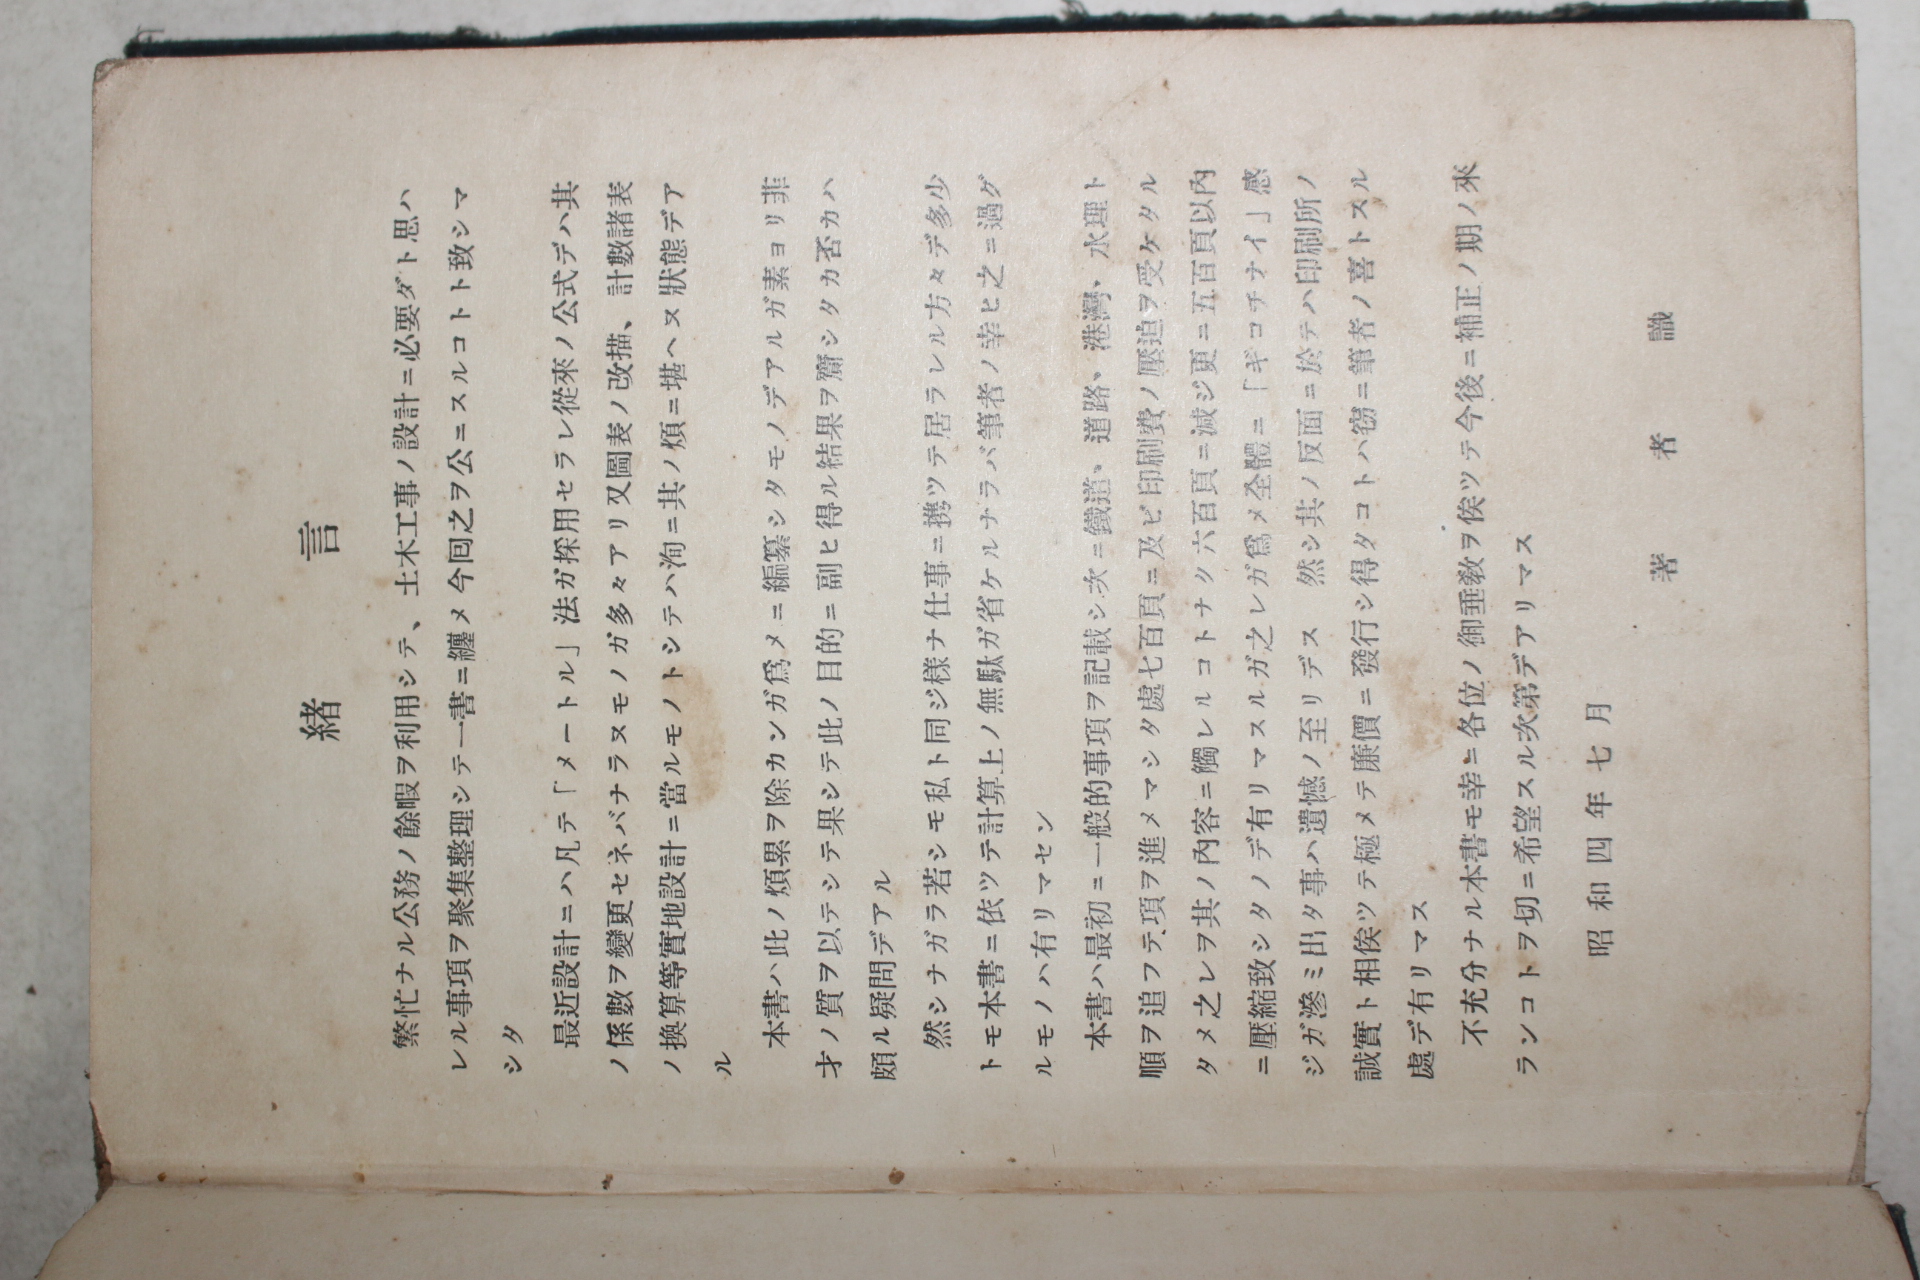 緒言
繁忙ナル公務ノ餘暇ヲ利用シテ、土木工事ノ設計ニ必要ダト思ハ
レル事項ヲ聚集整理シテ一書ニ纏メ今囘之ヲ公ニスルコトト致シマ
シタ
最近設計ニハ凡テ「メートル」法ガ採用セラレ從來ノ公式デハ其
ノ係數ヲ變更セネバナラヌモノガ多々アリ又圖表ノ改描、計數諸表
ノ換算等實地設計ニ當ルモノトシテハ洵ニ其ノ煩ニ堪ヘヌ狀態デア
ル
本書ハ此ノ煩累ヲ除カンガ爲メニ編纂シタモノデアルガ素ヨリ菲
才ノ質ヲ以テシテ果シテ此ノ目的ニ副ヒ得ル結果ヲ齎シタカ否カハ
頗ル疑問デアル
然シナガラ若シモ私ト同ジ樣ナ仕事ニ携ツテ居ラレル方々デ多少
トモ本書ニ依ツテ計算上ノ無駄ガ省ケルナラバ筆者ノ幸ヒ之ニ過グ
ルモノハ有リマセン
本書ハ最初ニ一般的事項ヲ記載シ次ニ鐵道、道路、港灣、水理ト
順ヲ追フテ項ヲ進メマシタ處七百頁ニ及ビ印刷費ノ壓迫ヲ受ケタル
タメ之レヲ其ノ內容ニ觸レルコトナク六百頁ニ減ジ更ニ五百頁以內
ニ壓縮致シタノデ有リマスルガ之レガ爲メ全體ニ「ギコチナイ」感
ジガ滲ミ出タ事ハ遺憾ノ至リデス　然シ其ノ反面ニ於テハ印刷所ノ
誠實ト相俟ツテ極メテ廉價ニ發行シ得タコトハ窃ニ筆者ノ喜トスル
處デ有リマス
不充分ナル本書モ幸ニ各位ノ御垂敎ヲ俟ツテ今後ニ補正ノ期ノ來
ランコトヲ切ニ希望スル次第デアリマス
昭和四年七月
著者識